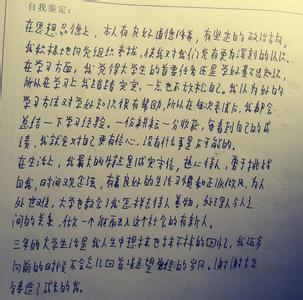 自我鉴定:
在思想品德上，本人有良好道德修养，有坚定的政治方向，
我积极地向党组织靠拢，使我对我们党有更为深刻的认识。
在学习方面，我觉得大学生的首要任务还是学好文化知识，
所以在学习上我踏踏实实，一点也不放松自己。我认为好的
学习方法对学好知识很有帮助，所以在每次考试后，我都会
总结一下学习经验。一份耕耘一分收获，每看到自己的成
绩，我就会对自己更有信心，没有什么事是不可能的。
在生活上，我最大的特点是诚实守信，热心待人，勇于挑战
自我，时间观念强，有着良好的生活习惯和正派作风。为人
处世
大学也教会了我怎样去待人美物，处理人与人之
间的关系，做一个能融入这个社会的有新人。
三年的大学生活是我人生中想抹也抹不掉的回忆，我迈步
向前的时候不会忘记回首凝望曾经的岁月。谢谢大学
生
造了成长的我。